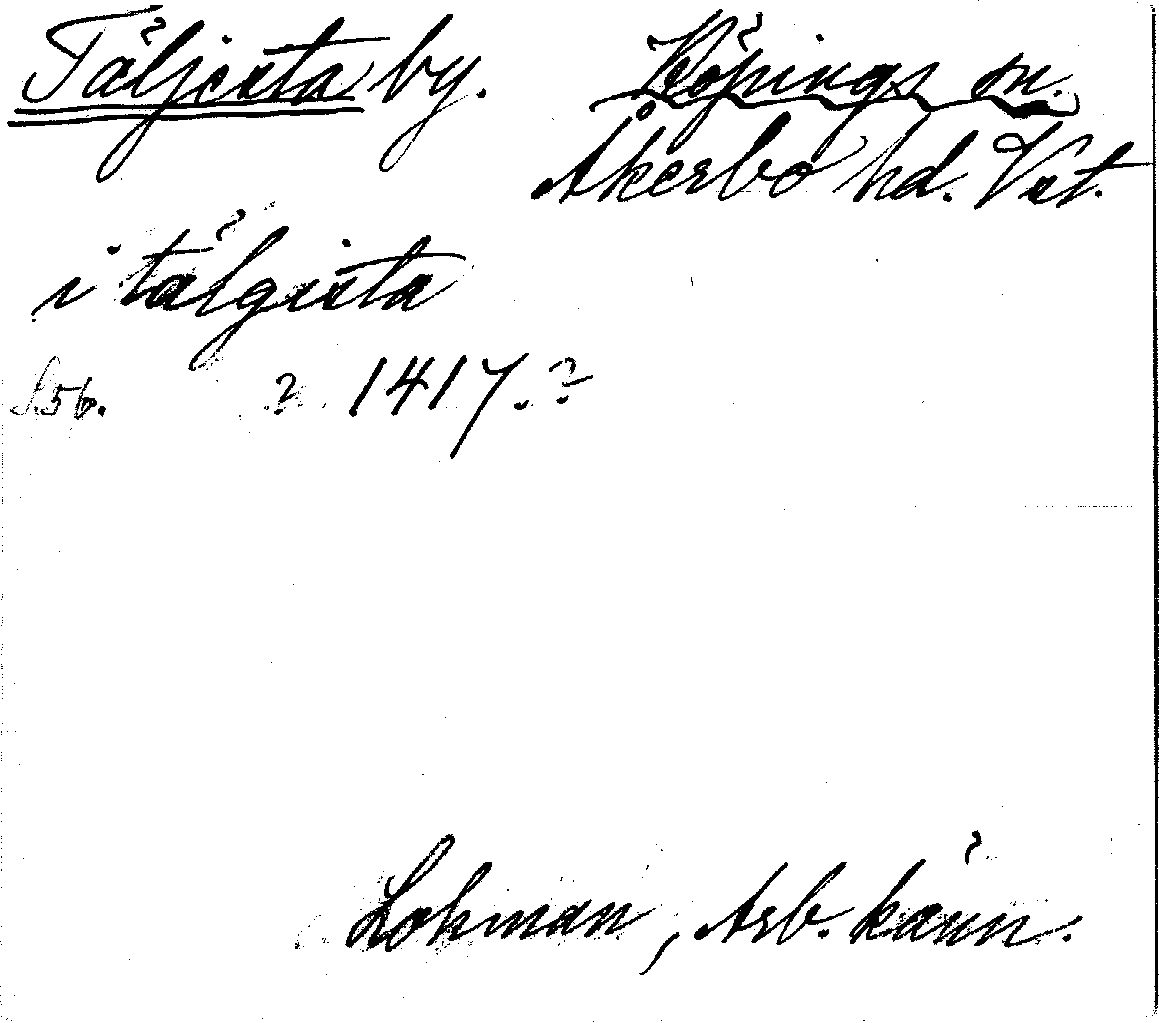 Täljesta by. Köpings sn.
Åkerbo hd. Vst.
i tälgista
S. 56. ? 1417. ?
Lohman, Arb. känn.